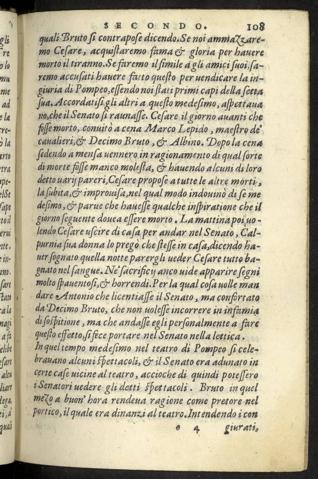 SECONDO. 108
quali Bruto si contrapose dicendo. Se noi ammazzare-
mo Cesare, acquistaremo fama & gloria per hauere
morto il tiranno. Se faremo il simile a gli amici suoi. sa-
remo accusati hauere fatto questo per uendicare la in-
giuria di Pompeo. essendo noi stati primi capi della setta
sua. Accordatisi gli altri a questo medesimo, aspettaua
no, che il Senato si raunasse. Cesare il giorno auanti che
fosse morto, conuitò a cena Marco Lepido, maestro de
caualieri, & Decimo Bruto, & Albino. Dopo la cena
sedendo a mensa uennero in ragionamento di qual sorte
di morte fosse manco molesta, & hauendo alcuni di loro
detto uary pareri, Cesare propose a tutte le altre morti,
la subita, & improuisa, nel qual modo indouinò di se me
desimo, & parue che hauesse qualche inspiratione che il
giorno seguente douea essere morto. La mattina poi, uo-
lendo Cesare uscire di casa per andar nel Senato, Cal-
purnia sua donna lo pregò che stesse in casa, dicendo ha-
uer sognato quella notte parergli ueder Cesare tutto ba-
gnato nel sangue. Ne' sacrificy anco uide apparire segni
molto spauentosi, & horrendi. Per la qual cosa uolle man
dare Antonio che licentiasse il Senato, ma confortato
da Decimo Bruto, che non uolesse incorrere in infamia
di sospitione, ma che andasse egli personalmente a fare
questo effetto, si fece portare nel Senato nella lettica.
In quel tempo medesimo nel teatro di Pompeo si cele-
brauano alcuni spettacoli, & il Senato era adunato in
certe case uicine al teatro, accioche di quindi potessero
i Senatori uedere gli detti spettacoli. Bruto in quel
mezo a buon' hora rendeua ragione come pretore nel
portico, il quale era dinanzi al teatro. Intendendo i con
o 4 giurati,